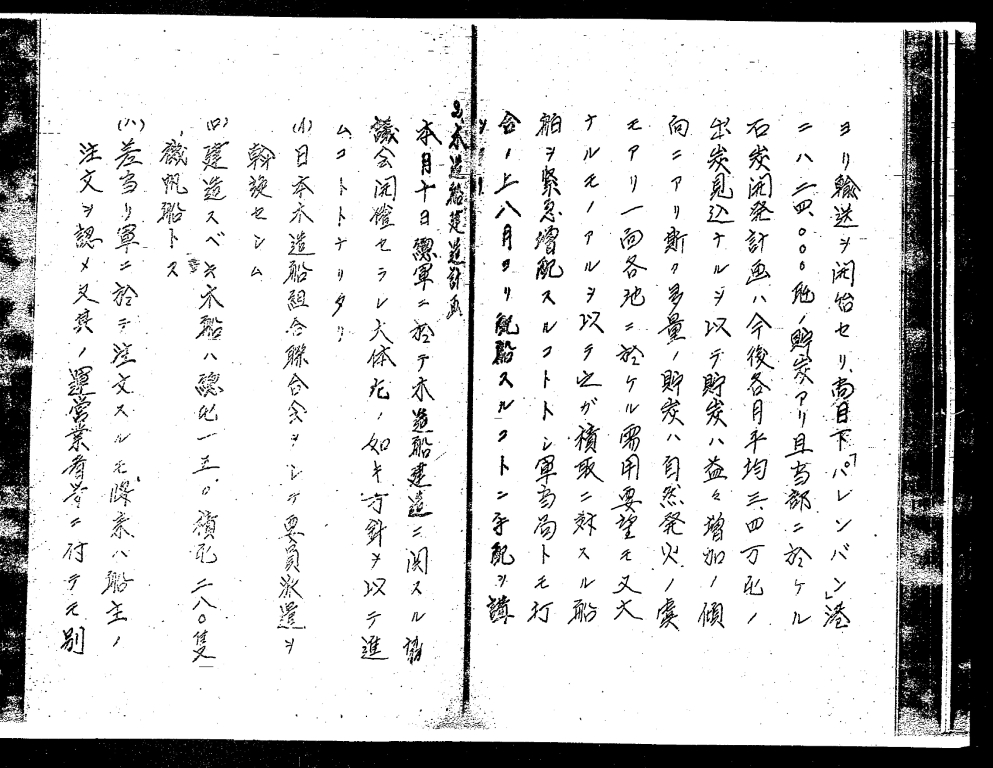 ヨリ輸送ヲ開始セリ、尚目下「パレンバン」港
ニハ二四、〇〇〇瓲ノ貯炭アリ且当部ニ於ケル
石炭開発計画ハ今後各月平均三、四万瓲ノ
出炭見込ナルヲ以テ貯炭ハ益々増加ノ傾
向ニアリ斯ク多量ノ貯炭ハ自然発火ノ虞
モアリ一面各地ニ於ケル需用要望モ又大
ナルモノアルヲ以テ之ガ積取ニ対スル船
舶ヲ緊急増配スルコトトシ軍当局トモ打
合ノ上八月ヨリ配船スルコトニ手配ヲ講
2、木造船建造計画
本月十日總軍ニ於テ木造船建造ニ関スル協
議会開催セラレ大体左ノ如キ方針ヲ以テ進
ムコトトナリタリ
(イ)日本木造船組合聯合会ヲシテ要員派遣ヲ
斡旋セシム
(ロ)建造スベキ木船ハ總屯一五〇積屯二八〇隻
機帆船トス
(ハ)差当リ軍ニ於テ注文スルモ将来ハ船主ノ
注文ヲ認メ又其ノ運営業者等ニ付テモ別